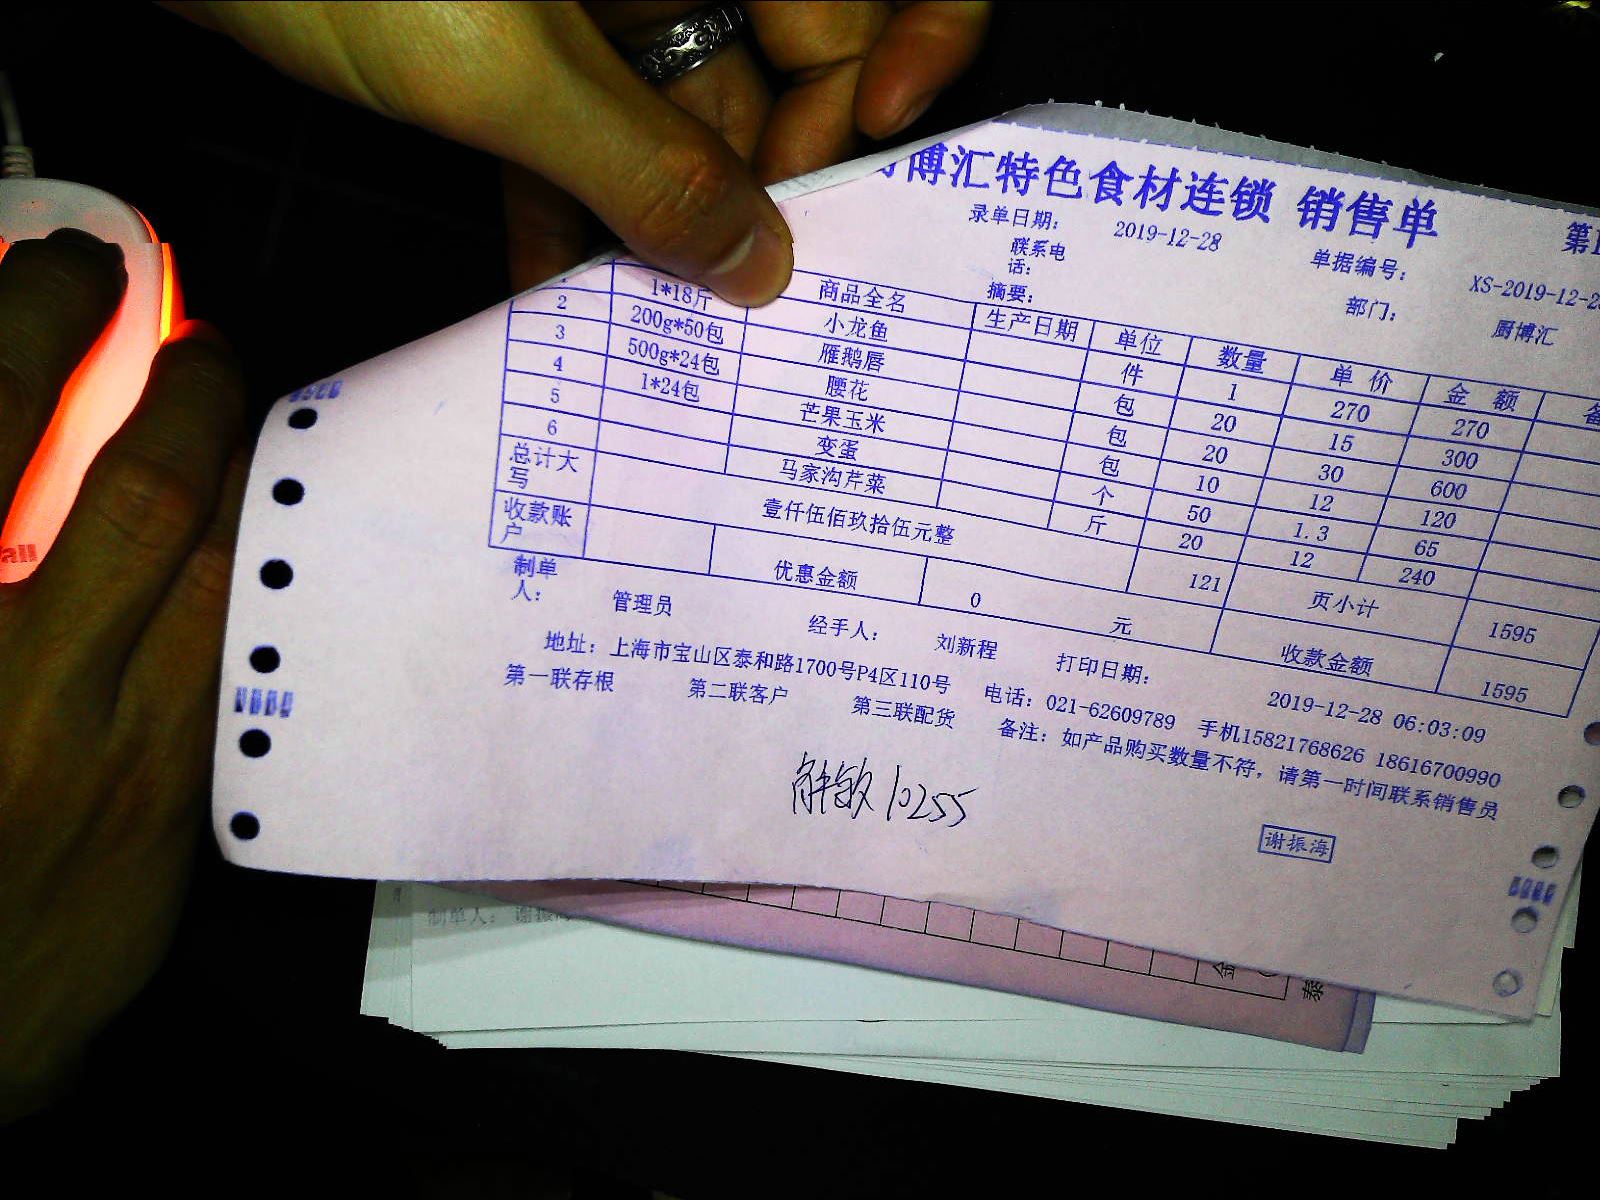 博汇特色食材连锁 销售单
录单日期： 2019-12-28 单据编号： XS-2019-12-2
联系电话： 部门： 厨博汇
摘要：
商品全名 生产日期 单位 数量 单价 金额
1 1*18斤 小龙鱼 件 1 270 270
2 200g*50包 雁鹅唇 包 20 15 300
3 500g*24包 腰花 包 20 30 600
4 1*24包 芒果玉米 包 10 12 120
5 变蛋 个 50 1.3 65
6 马家沟芹菜 斤 20 12 240
总计大写 壹仟伍佰玖拾伍元整 121 页小计 1595
收款账户 优惠金额 0 元 收款金额 1595
制单人： 管理员 经手人： 刘新程 打印日期： 2019-12-28 06:03:09
地址：上海市宝山区泰和路1700号P4区110号 电话：021-62609789 手机15821768626 18616700990
第一联存根 第二联客户 第三联配货 备注：如产品购买数量不符，请第一时间联系销售员
10255
谢振海
制单人： 谢振
金
泰
all